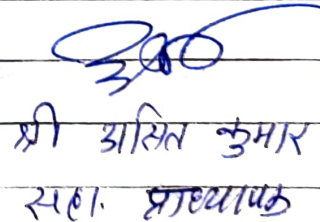 श्री असित कुमार
सहा. प्राध्यापक